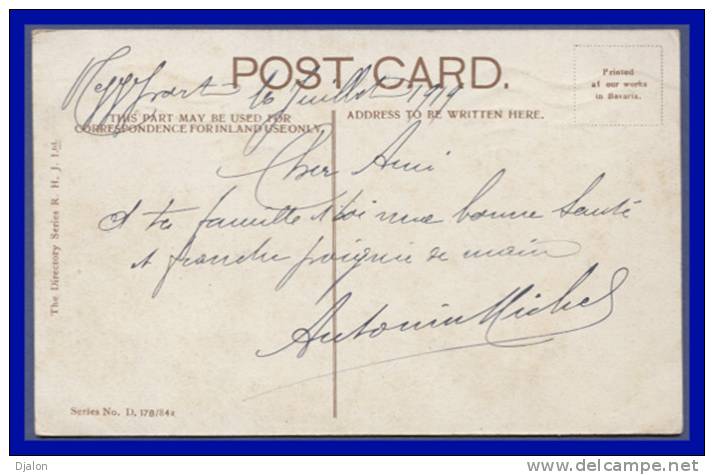 POST CARD.
16 Juillet 1919
Printed
at our works
in Bavaria.
THIS PART MAY BE USED FOR
CORRESPONDENCE FOR INLAND USE ONLY.
ADDRESS TO BE WRITTEN HERE.
The Directory Series R. H. J. Ltd.
Cher Ami
A ta famille & toi une bonne Santé
et franche poignée de main
Antonin Michel
Series No. D. 178/84a
Djalon
delcampe.net